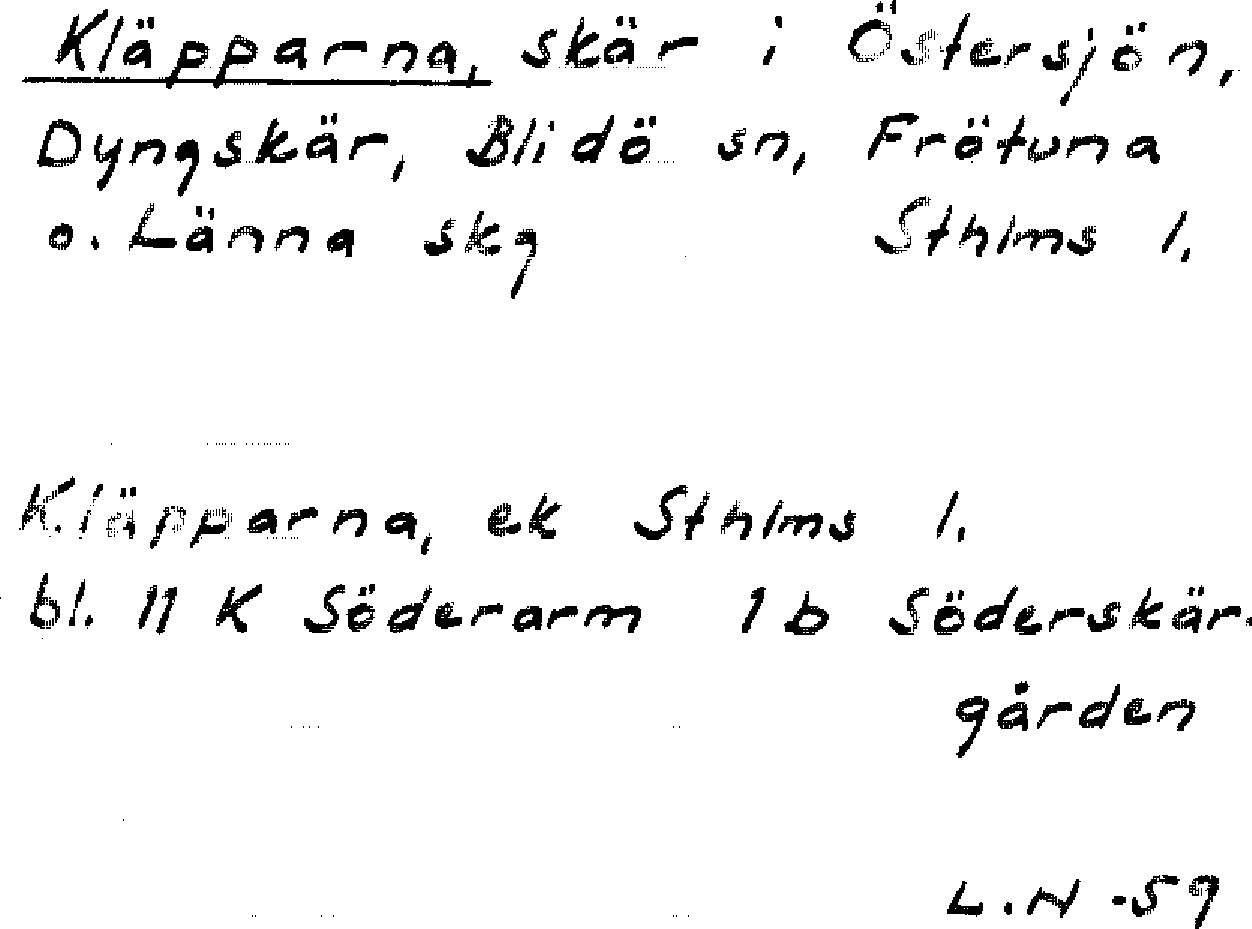 Kläpparna, skär i Östersjön,
Dyngskär, Blidö sn, Frötuna
o. Länna skg Sthlms l.
Kläpparna, ek Sthlms l.
bl. 11 K Söderarm 1 b Söderskär-
gården
L.N -59